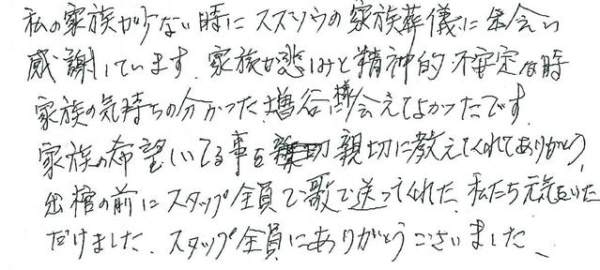 私の家族が少ない時にスズソウの家族葬儀に出会い
感謝しています。家族が悲しみと精神的不安定な時
家族の気持ちの分かった増谷様会えてよかったです。
家族の希望している事を親切に教えてくれてありがとう。
出棺の前にスタッフ全員で歌で送ってくれた。私たち元気をいた
だけました。スタッフ全員にありがとうございました。